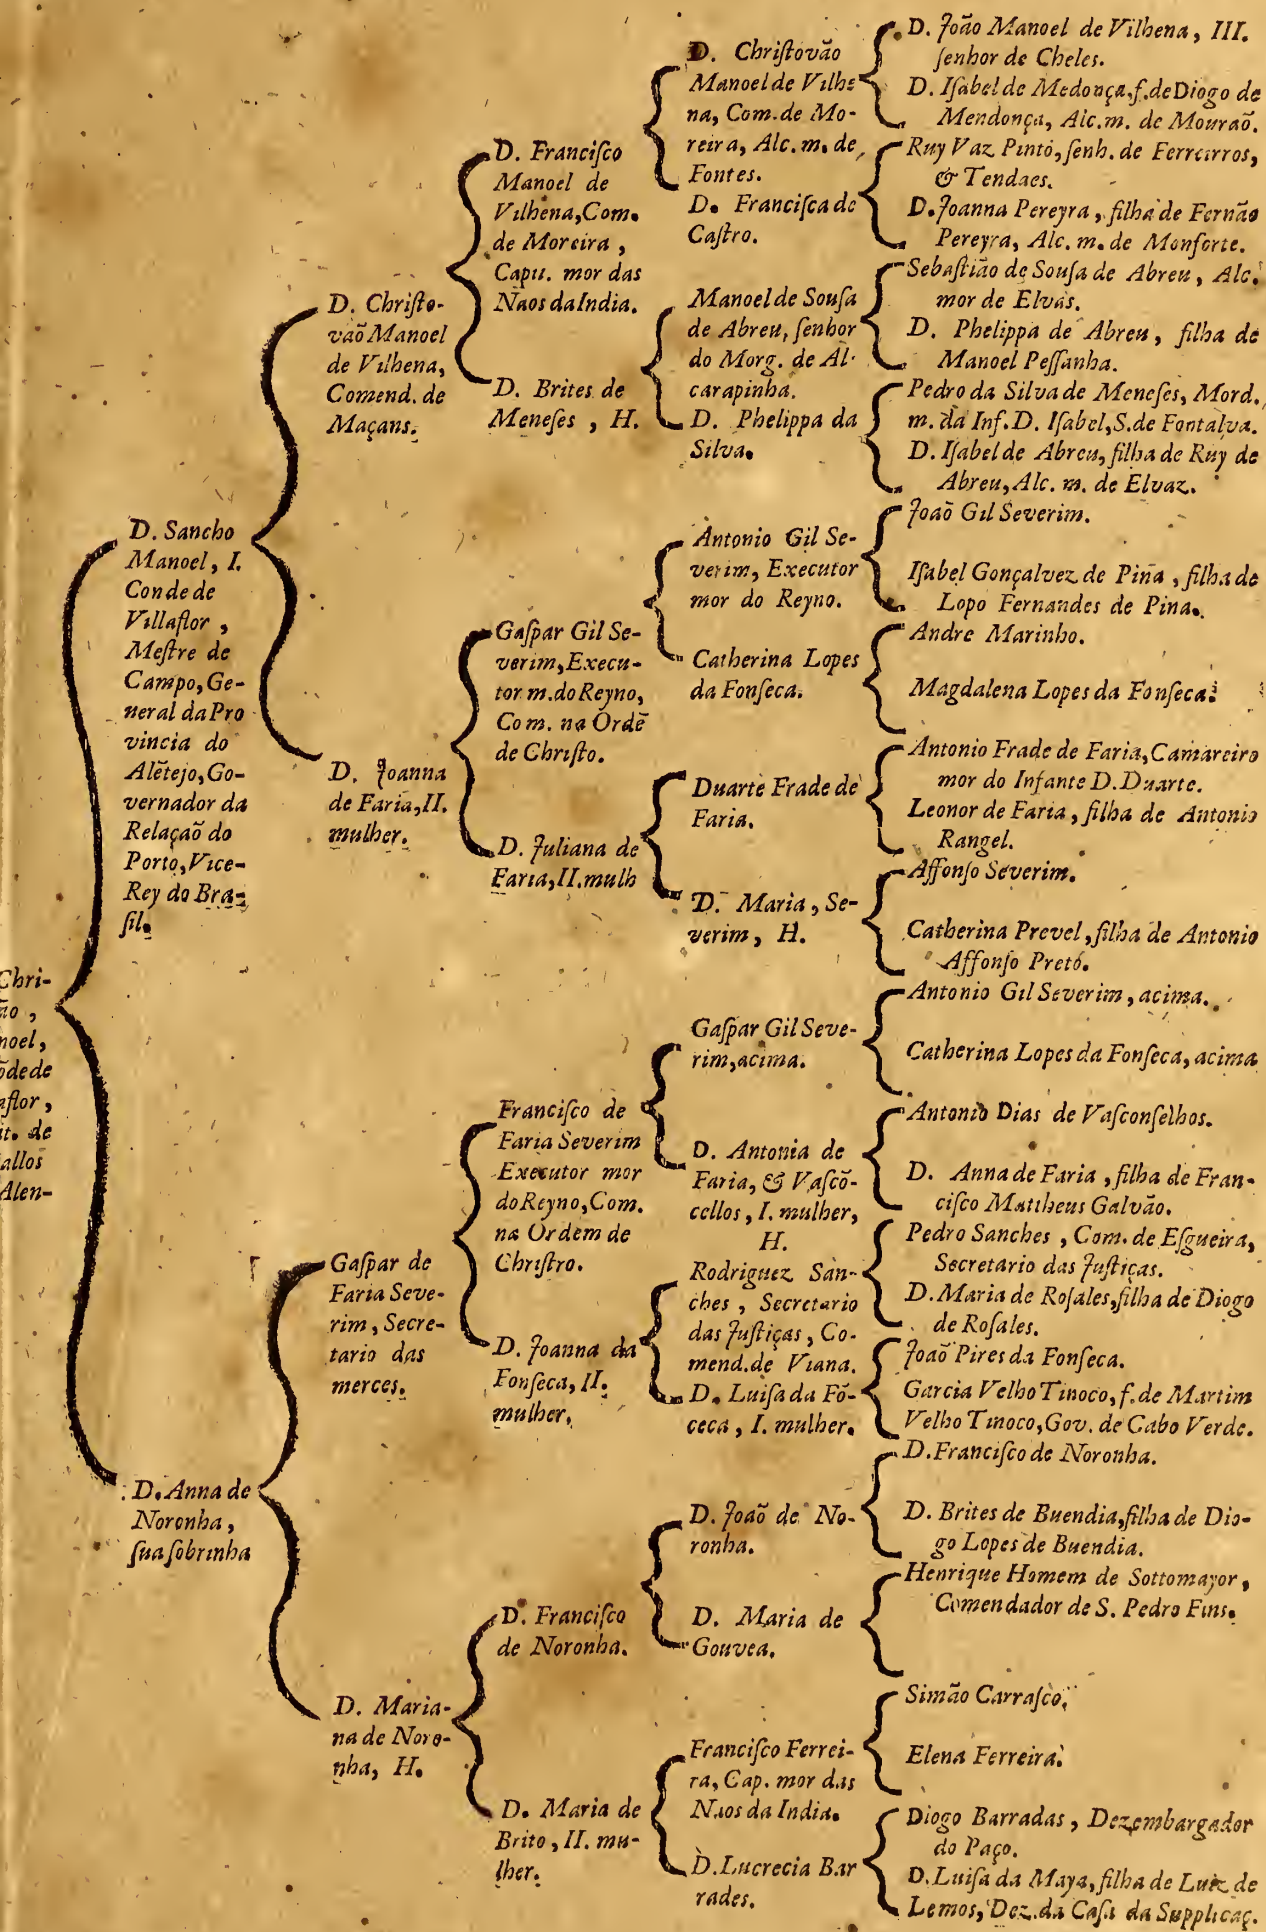 Chri-
ão,
noel,
õde de
aflor,
it. de
allos
Alen-
D. Sancho
Manoel, I.
Conde de
Villaflor,
Meſtre de
Campo, Ge-
neral da Pro
vincia do
Alẽtejo, Go-
vernador da
Relaçaõ do
Porto, Vice-
Rey do Bra-
ſil.
D. Anna de
Noronha,
ſua ſobrinha
D. Chriſto-
vaõ Manoel
de Vilhena,
Comend. de
Maçans.
D. Joanna
de Faria, II.
mulher.
Gaſpar de
Faria Seve-
rim, Secre-
tario das
merces.
D. Maria-
na de Noro-
nha, H.
D. Franciſco
Manoel de
Vilhena, Com.
de Moreira,
Capit. mor das
Naos da India.
D. Brites de
Meneſes, H.
Gaſpar Gil Se-
verim, Execu-
tor m. do Reyno,
Com. na Ordẽ
de Chriſto.
D. Juliana de
Faria, II. mulh
Franciſco de
Faria Severim
Executor mor
do Reyno, Com.
na Ordem de
Chriſtro.
D. Joanna da
Fonſeca, II.
mulher.
D. Franciſco
de Noronha.
D. Maria de
Brito, II. mu-
lher.
D. Chriſtovão
Manoel de Vilhe
na, Com. de Mo-
reira, Alc. m. de
Fontes.
D. Franciſca de
Caſtro.
Manoel de Souſa
de Abreu, ſenhor
do Morg. de Al-
carapinha.
D. Phelippa da
Silva.
Antonio Gil Se-
verim, Executor
mor do Reyno.
Catherina Lopes
da Fonſeca.
Duarte Frade de
Faria.
D. Maria, Se-
verim, H.
Gaſpar Gil Seve-
rim, acima.
D. Antonia de
Faria, & Vaſcõ-
cellos, I. mulher,
H.
Rodriguez San-
ches, Secretario
das Juſtiças, Co-
mend. de Viana.
D. Luiſa da Fõ-
ceca, I. mulher.
D. Joaõ de No-
ronha.
D. Maria de
Gouvea.
Franciſco Ferrei-
ra, Cap. mor das
Naos da India.
D. Lucrecia Bar
rades.
D. João Manoel de Vilhena, III.
ſenhor de Cheles.
D. Iſabel de Medonça, f. de Diogo de
Mendonça, Alc. m. de Mouraõ.
Ruy Vaz Pinto, ſenh. de Ferreirros,
& Tendaes.
D. Joanna Pereyra, filha de Fernão
Pereyra, Alc. m. de Monforte.
Sebaſtião de Souſa de Abreu, Alc.
mor de Elvas.
D. Phelippa de Abreu, filha de
Manoel Peſſanha.
Pedro da Silva de Meneſes, Mord.
m. da Inf. D. Iſabel, S. de Fontalva.
D. Iſabel de Abreu, filha de Ruy de
Abreu, Alc. m. de Elvaz.
Joaõ Gil Severim.
Iſabel Gonçalvez de Piña, filha de
Lopo Fernandes de Pina.
Andre Marinho.
Magdalena Lopes da Fonſeca.
Antonio Frade de Faria, Camareiro
mor do Infante D. Duarte.
Leonor de Faria, filha de Antonio
Rangel.
Affonſo Severim.
Catherina Prevel, filha de Antonio
Affonſo Preto.
Antonio Gil Severim, acima.
Catherina Lopes da Fonſeca, acima
Antonio Dias de Vaſconſelhos.
D. Anna de Faria, filha de Fran-
ciſco Mattheus Galvão.
Pedro Sanches, Com. de Eſgueira,
Secretario das Juſtiças.
D. Maria de Roſales, filha de Diogo
de Roſales.
Joaõ Pires da Fonſeca.
Garcia Velho Tinoco, f. de Martim
Velho Tinoco, Gov. de Cabo Verde.
D. Franciſco de Noronha.
D. Brites de Buendia, filha de Dio-
go Lopes de Buendia.
Henrique Homem de Sottomayor,
Comendador de S. Pedro Fins.
Simão Carraſco.
Elena Ferreira.
Diogo Barradas, Dezembargador
do Paço.
D. Luiſa da Maya, filha de Luiz de
Lemos, Dez. da Caſa da Supplicaç.